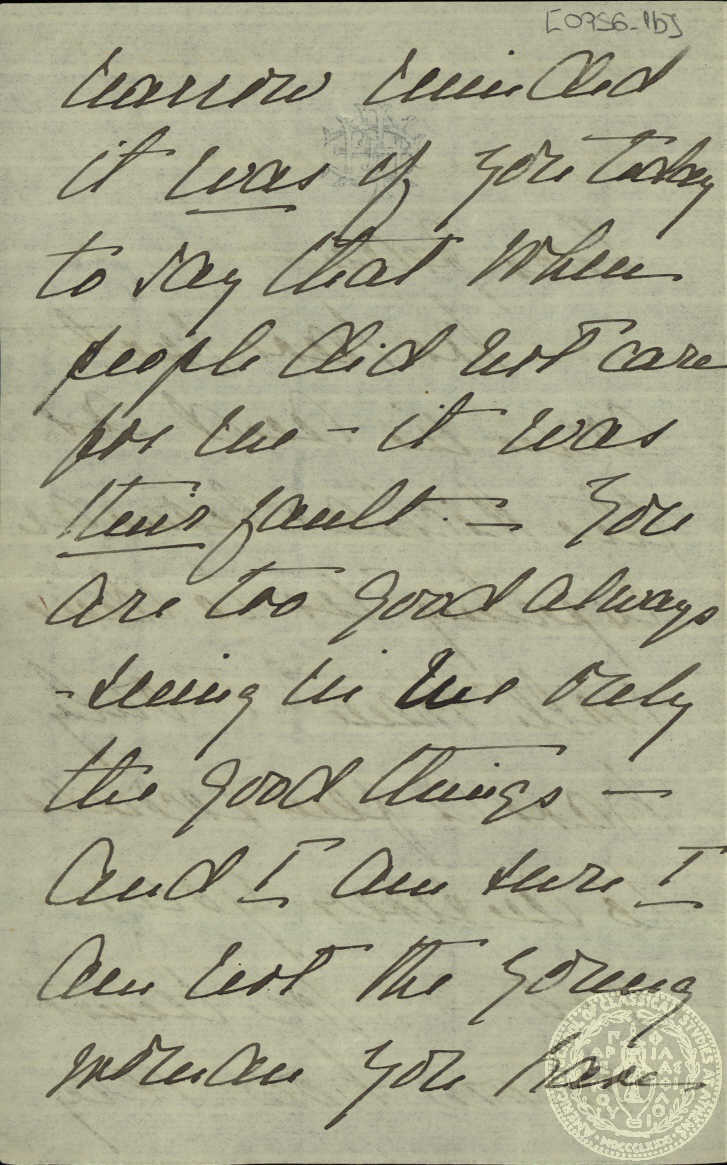 [0956-1b]
narrow minded
it was of you today
to say that when
people did not care
for me - it was
their fault. - You
are too good always
- seeing in me only
the good things -
and I am sure I
am not the young
woman you have